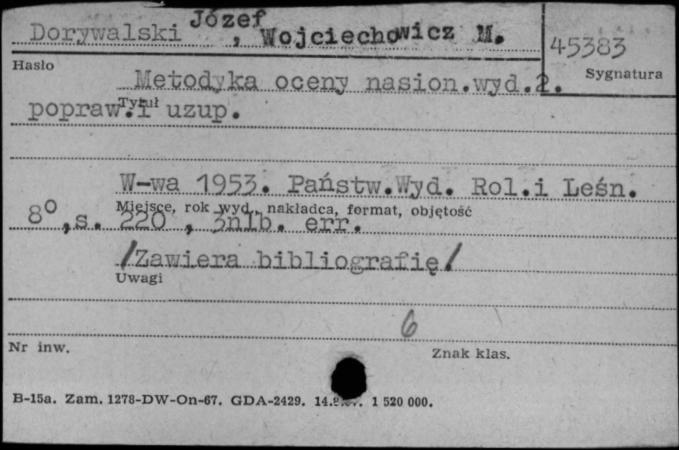 Józef
Dorywalski , Wojciechowicz M.
45383
Hasło
Sygnatura
Metodyka oceny nasion.wyd.2.
Tytuł
popraw.i uzup.
W-wa 1953. Państw.Wyd. Rol.i Leśn.
Miejsce, rok wyd., nakładca, format, objętość
8°,s. 220 , 3nlb. err.
/Zawiera bibliografię/
Uwagi
6
Nr inw.
Znak klas.
B-15a. Zam. 1278-DW-On-67. GDA-2429. 1 520 000.